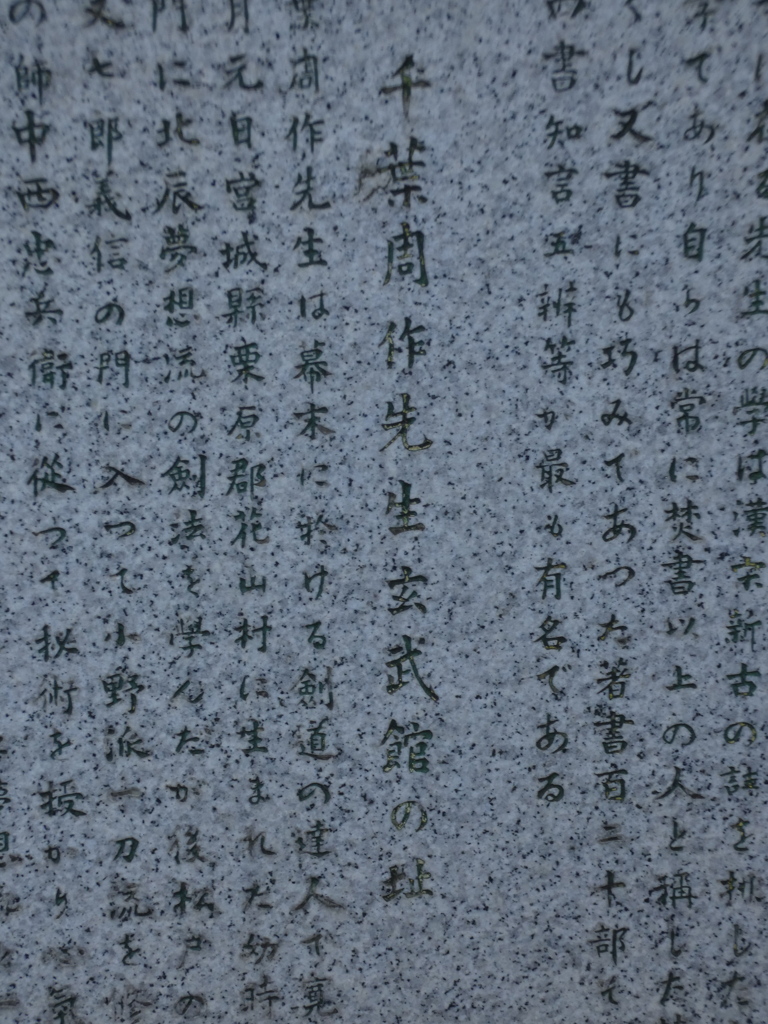 先生の學は漢宋新古の註を排した
てあり自らは常に焚書以上の人と稱した
し又書にも巧みであつた著書百二十部そ
書知言五辨等が最も有名である
千葉周作先生玄武館の址
周作先生は幕末に於ける劍道の達人で寛
月元日宮城縣栗原郡花山村に生まれた幼時
門に北辰夢想流の劍法を學んだが後松戸の
又七郎義信の門に入つて小野派一刀流を修
の師中西忠兵衛に從つて秘術を授かり心氣